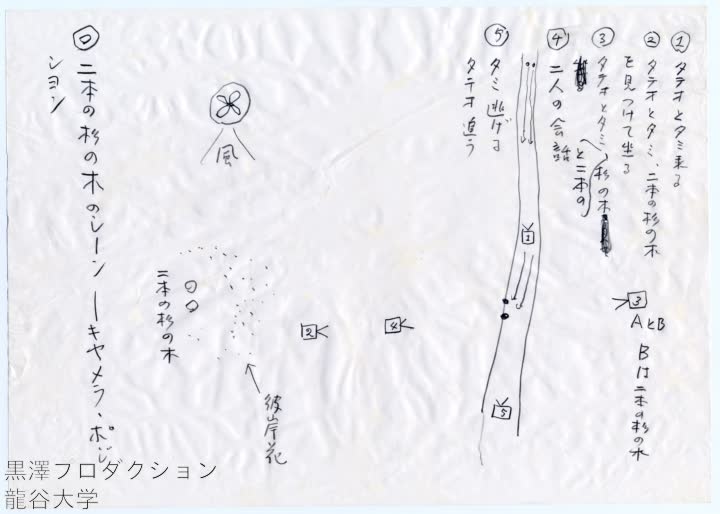 ① タテオとタミ来る
② タテオとタミ、二本の杉の木
を見つけて坐る
③ タテオとタミ(と二本の杉の木)
④ 二人の会話
⑤ タミ逃げる
タテオ追う
1
3
AとB
Bは二本の杉の木
5
4
2
彼岸花
風
二本の杉の木
回 二本の杉の木のシーン―キャメラ・ポジ
ション
黒澤プロダクション
龍谷大学